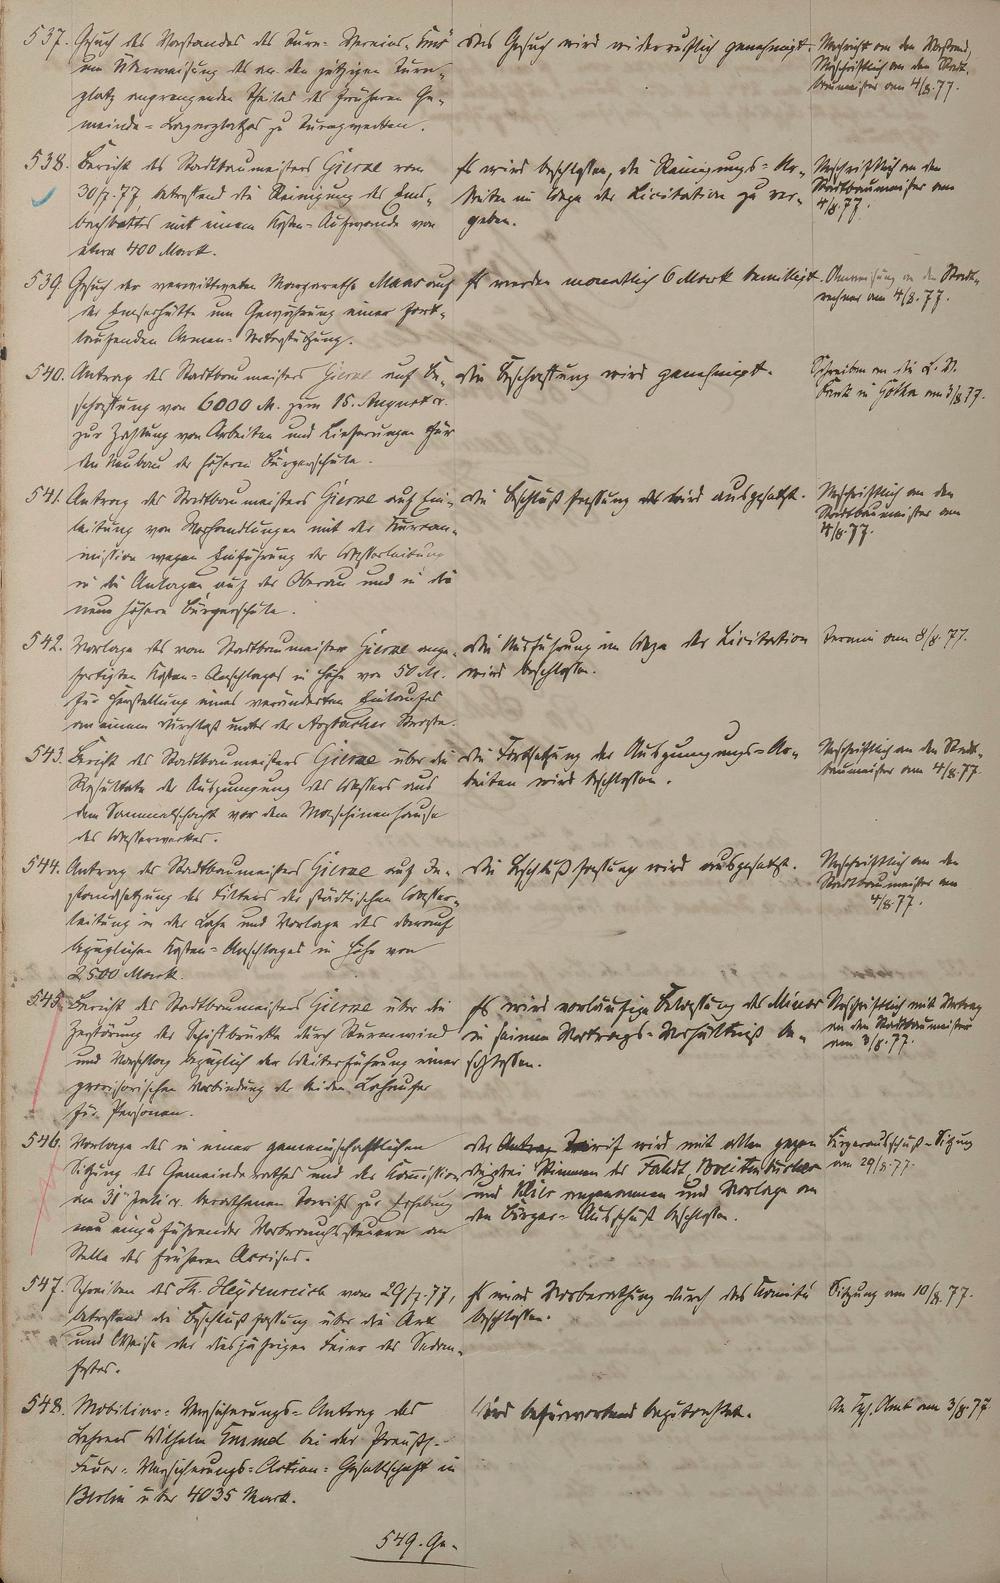 537. Gesuch des Vorstandes des Turn-Vereins Ems
um Überweisung des an den jetzigen Turn-
platz angrenzenden Theiles des früheren Ge-
meinde-Lagerplatzes zu Turnzwecken.
Das Gesuch wird widerruflich genehmigt.
Nachricht an den Vorstand,
Abschriftlich an den Stadt-
baumeister am 4/8.77.
538. Bericht des Stadtbaumeisters Gierae vom
30/7.77, betreffend die Reinigung des Ems-
bachbettes mit einem Kosten-Aufwande von
etwa 400 Mark.
Es wird beschlossen, die Reinigungs-Ar-
beiten im Wege der Licitation zu ver-
geben.
Abschriftlich an den
Stadtbaumeister am
4/8.77.
539. Gesuch der verwittweten Margarethe Maas auf
der Emserhütte um Gewährung einer fort-
laufenden Armen-Unterstützung.
Es werden monatlich 6 Mark bewilligt.
Anweisung an den Stadt-
rechner am 4/8.77.
540. Antrag des Stadtbaumeisters Gierae auf Be-
schaffung von 6000 M. zum 15. August cr.
zur Zahlung von Arbeiten und Lieferungen für
den Neubau der höheren Bürgerschule.
Die Beschaffung wird genehmigt.
Schreiben an die
in Gotha am 3/8.77.
541. Antrag des Stadtbaumeisters Gierae auf Ein-
leitung von Verhandlungen mit der Kurcom-
mission wegen Einführung der Wasserleitung
in die Anlagen auf der Oberau und in die
neue höhere Bürgerschule.
Die Beschlußfassung wird ausgesetzt.
Abschriftlich an den
Stadtbaumeister am
4/8.77.
542. Vorlage des vom Stadtbaumeister Gierae ange-
fertigten Kosten-Anschlages in Höhe von 50 M.
für Herstellung eines veränderten Einlaufes
an einem Durchlaß unter der Arzbacher Straße.
Die Ausführung im Wege der Licitation
wird beschlossen.
Termin am 8/8.77.
543. Bericht des Stadtbaumeisters Gierae über die
Resultate der Auspumpung des Wassers aus
dem Sammelschacht vor dem Maschinenhause
des Wasserwerkes.
Die Fortsetzung der Auspumpungs-Ar-
beiten wird beschlossen.
Abschriftlich an den Stadt-
baumeister am 4/8.77.
544. Antrag des Stadtbaumeisters Gierae auf In-
standsetzung des Filters der städtischen Wasser-
leitung in der Lahn und Vorlage des darauf
bezüglichen Kosten-Anschlages in Höhe von
2500 Mark.
Die Beschlußfassung wird ausgesetzt.
Abschriftlich an den
Stadtbaumeister am
4/8.77.
545. Bericht des Stadtbaumeisters Gierae über die
Zerstörung der Schiffbrücke durch Sturmwind
und Vorschlag bezüglich der Weiterführung einer
provisorischen Verbindung der beiden Lahnufer
für Personen.
Es wird vorläufige Belassung des
in seinem Vertrags-Verhältniß be-
schlossen.
Abschriftlich mit Vertrag
an den Stadtbaumeister
am 3/8.77.
546. Vorlage des in einer gemeinschaftlichen
Sitzung des Gemeinderathes und der Commission
am 31ten Juli cr. berathenen Tarifs zur Erhebung
neu einzuführender Verbrauchssteuern an
Stelle des früheren Accises.
Der Tarif wird mit allen gegen
Stimmen der
und angenommen und Vorlage an
den Bürger-Ausschuß beschlossen.
Bürgerausschuß-Sitzung
am 29/8.77.
547. Schreiben des Th. Heydenreich vom 29/7.77,
betreffend die Beschlußfassung über die Art
und Weise der diesjährigen Feier des Sedan-
festes.
Es wird Vorberathung durch das Comité
beschlossen.
Sitzung am 10/8.77.
548. Mobiliar-Versicherungs-Antrag des
Lehrers Wilhelm bei der Preuß.
Feuer-Versicherungs-Actien-Gesellschaft in
Berlin über 4035 Mark.
Wird befürwortend begutachtet.
An Kgl. Amt am 3/8.77
549. Ge-